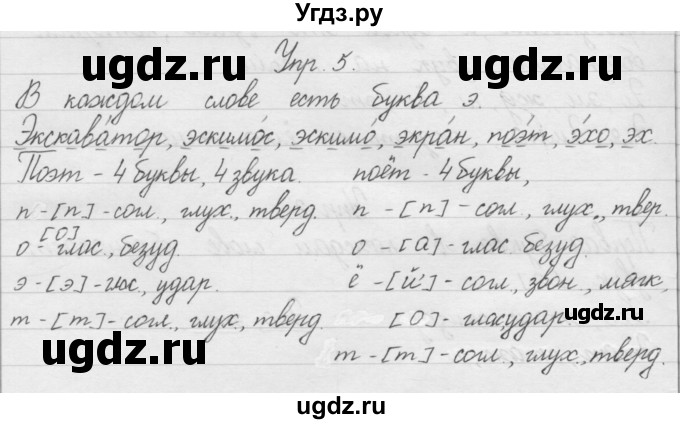 Угдз.ру
Упр. 5.
В каждом слове есть буква э.
Экскава́тор, эскимо́с, эскимо́, экра́н, поэ́т, э́хо, эх.
Поэт - 4 буквы, 4 звука. поёт - 4 буквы,
п - [п] - согл., глух., тверд. п - [п] - согл., глух., твер.
о - [о] - глас., безуд. о - [а] - глас. безуд.
э - [э] - гл., удар. ё - [й'] - согл., звон., мягк.,
т - [т] - согл., глух., тверд. [о] - глас. удар.
т - [т] - согл., глух., тверд.
ugdz.ru
ugdz.ru
ugdz.ru
ugdz.ru
ugdz.ru
ugdz.ru
ugdz.ru